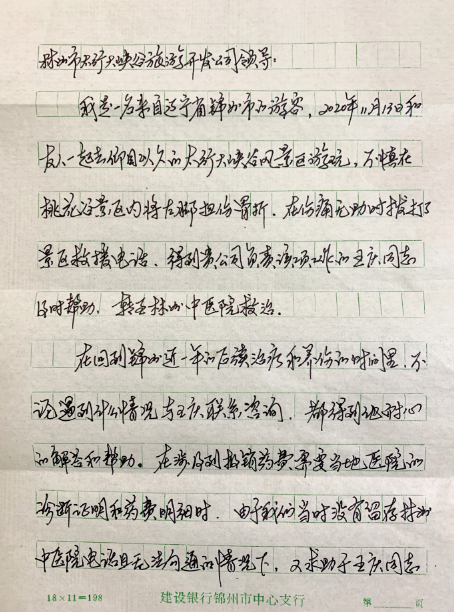 林州市太行大峡谷旅游开发公司领导：
我是一名来自辽宁省锦州市的游客，2020年11月13日和
友人一起去仰目以久的太行大峡谷风景区游玩，不慎在
桃花谷景区内将左脚扭伤骨折。在伤痛无助时拨打了
景区救援电话，得到贵公司负责该项工作的王庆同志
及时帮助，转至林州中医院救治。
在回到锦州近一年的后续治疗和养伤的时间里，不
论遇到什么情况与王庆联系咨询，都得到他耐心
的解答和帮助。在涉及到报销药费需要当地医院的
诊断证明和药费明细时，由于我们当时没有留存林州
中医院电话且无法沟通的情况下，又求助于王庆同志
18×11=198
建设银行锦州市中心支行
第 页